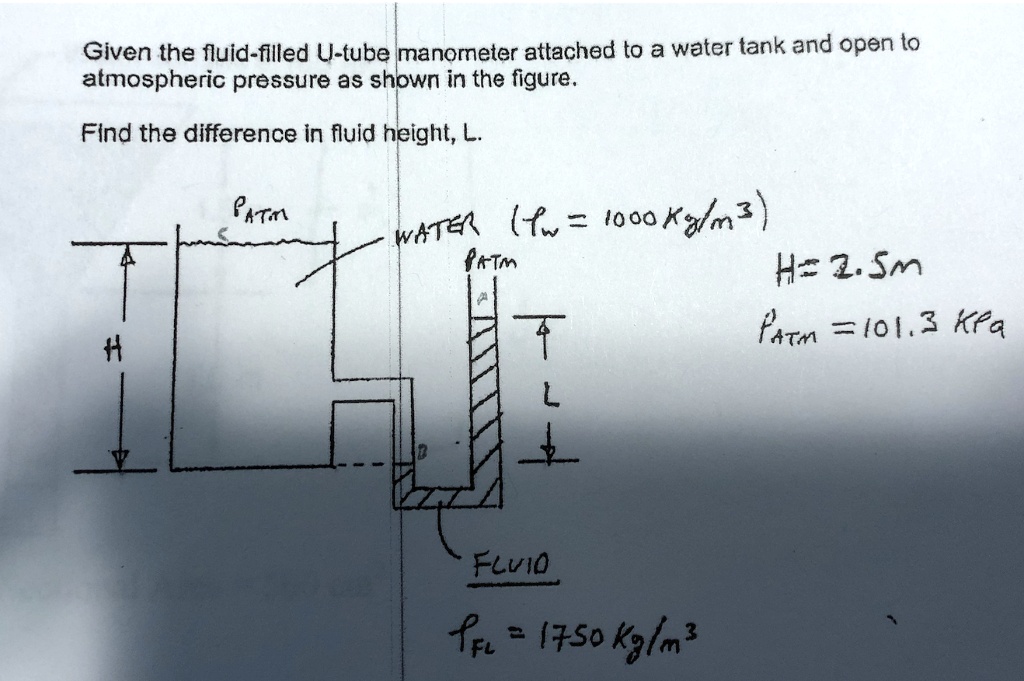 Given the fluid-filled U-tube manometer attached to a water tank and open to
atmospheric pressure as shown in the figure.
Find the difference in fluid height, L.
PATM
WATER (ρw = 1000 Kg/m³)
PATM
H= 2.5m
A
PATM = 101.3 KPa
H
L
B
FLUID
ρFL = 1750 Kg/m³